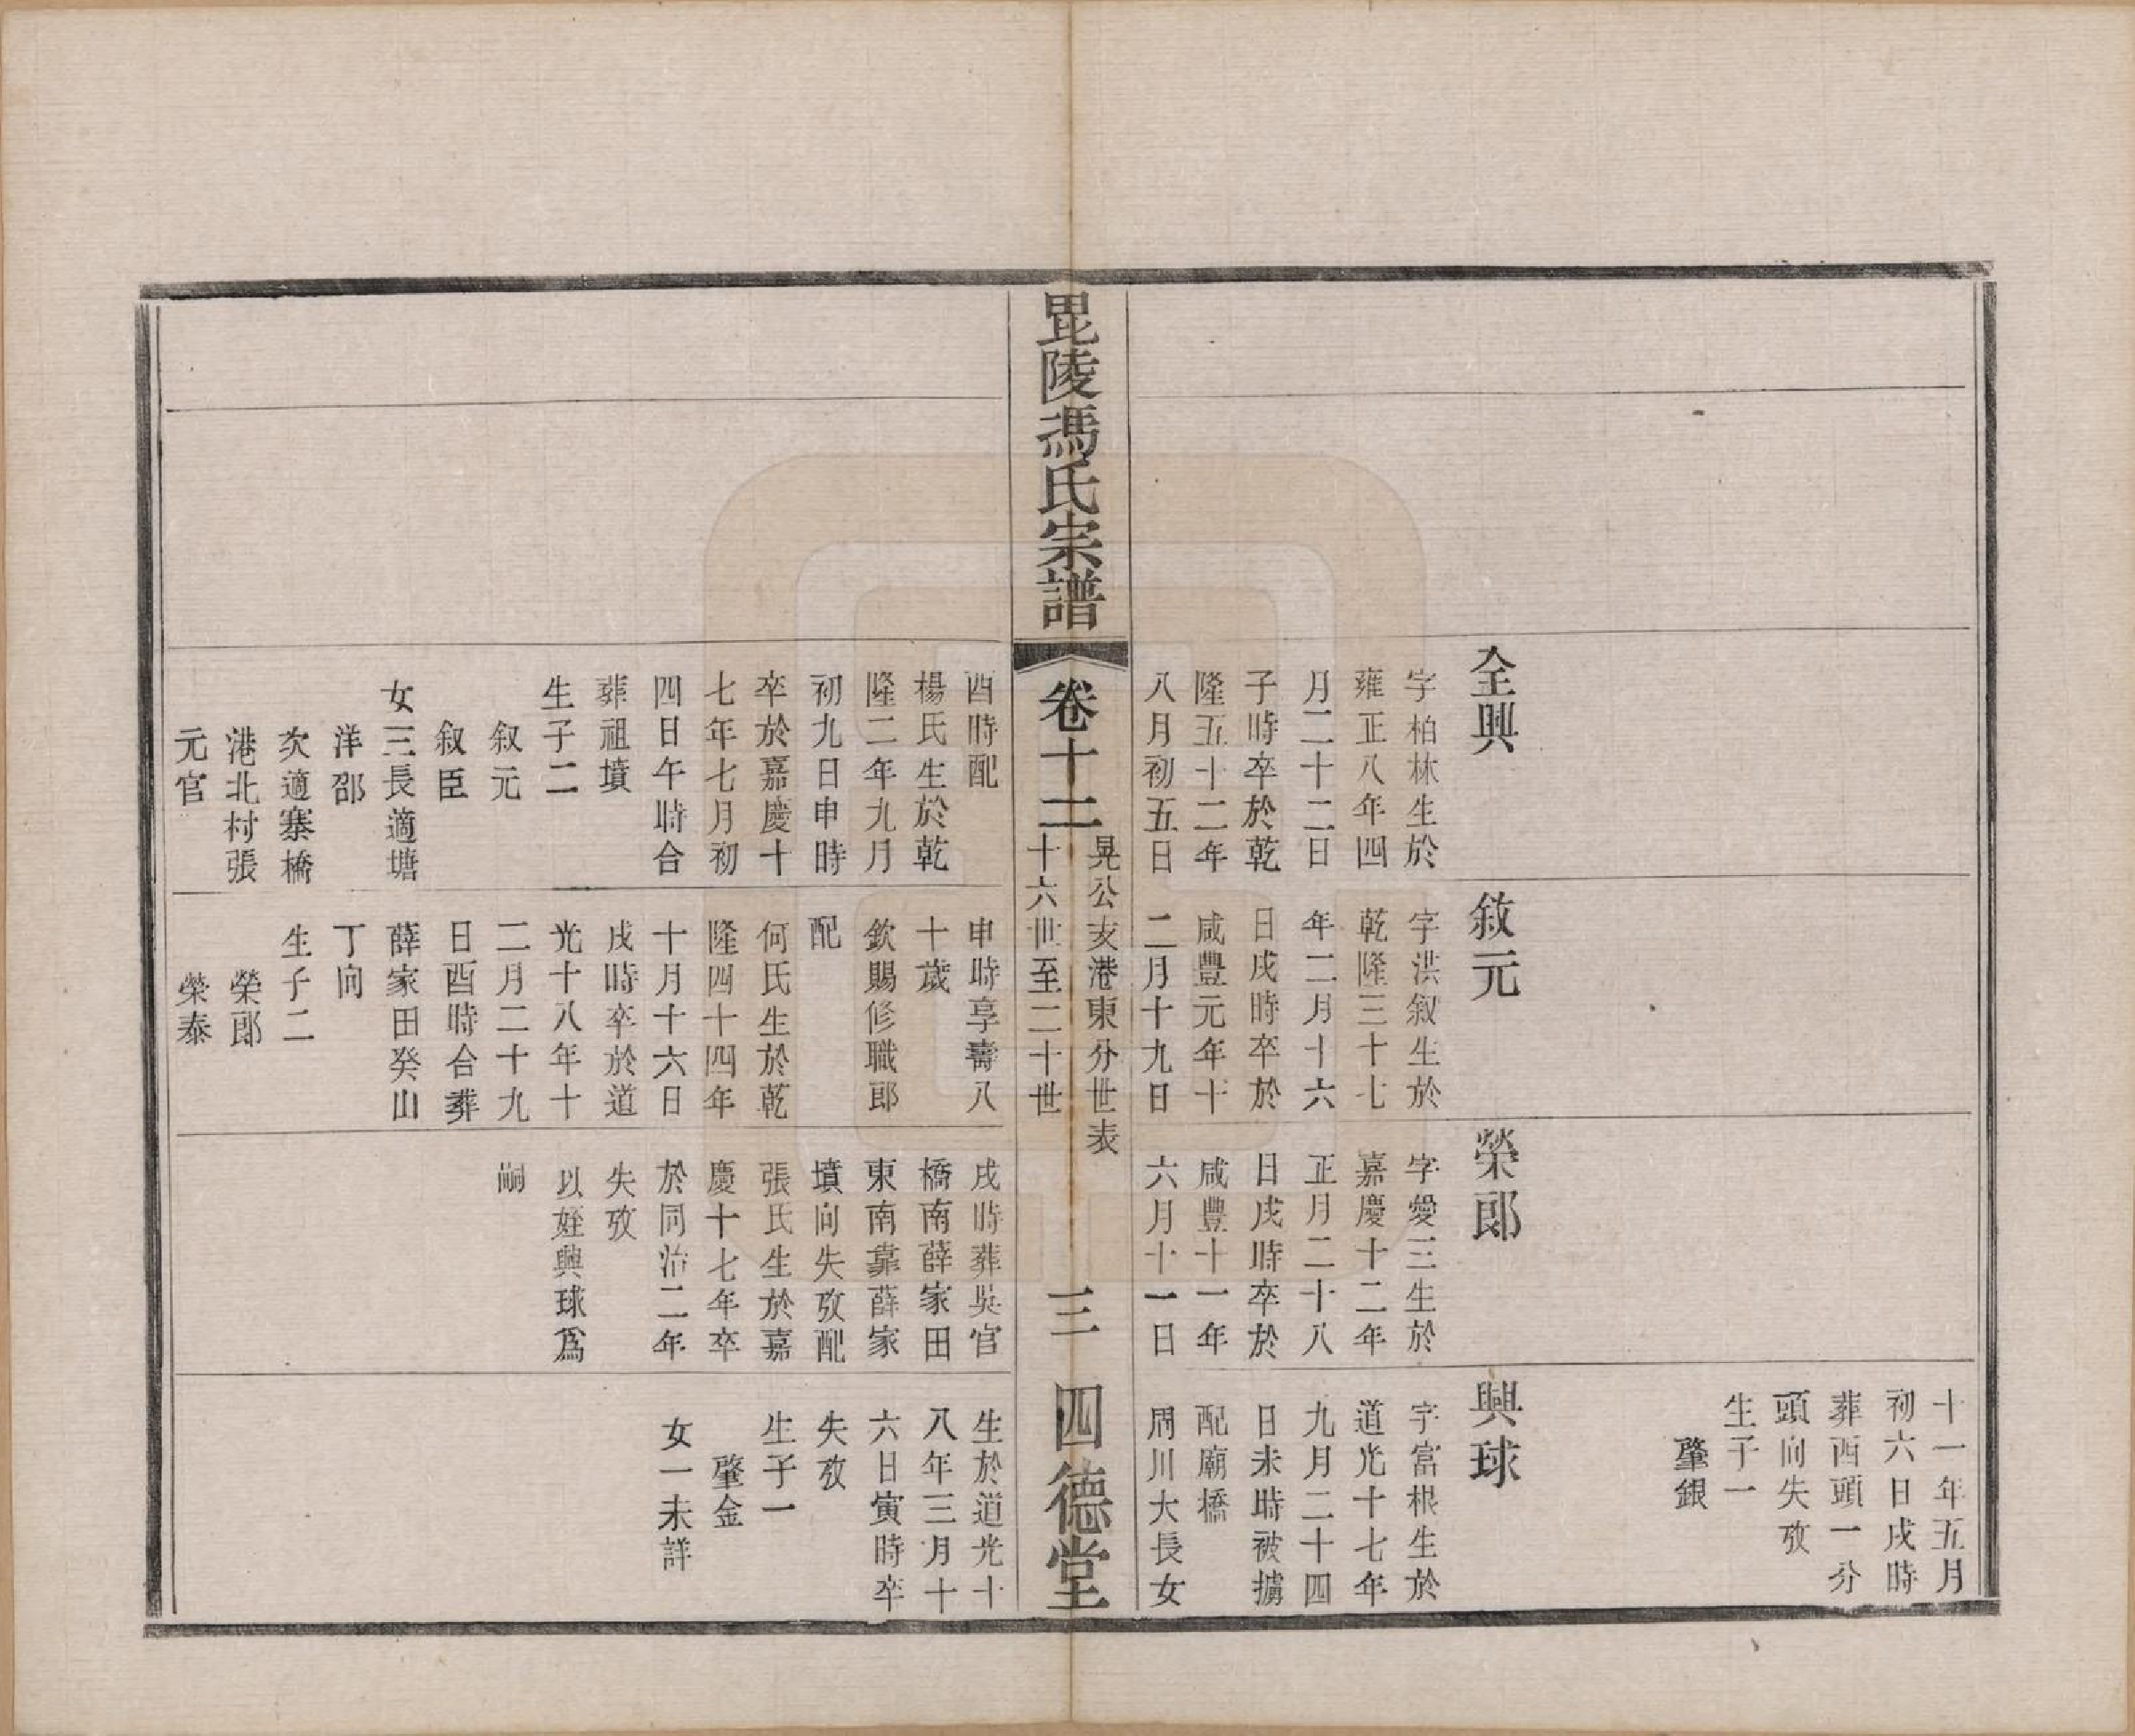 十一年五月
初六日戌時
葬西頭一分
頭向失攷
生子一
肇銀
全興
字柏林生於
雍正八年四
月二十二日
子時卒於乾
隆五十二年
八月初五日
敘元
字洪叙生於
乾隆三十七
年二月十六
日戌時卒於
咸豐元年十
二月十九日
榮郎
字愛三生於
嘉慶十二年
正月二十八
日戌時卒於
咸豐十一年
六月十一日
興球
字富根生於
道光十七年
九月二十四
日未時被擄
配廟橋
周川大長女
毘陵馮氏宗譜
卷十二
晃公支港東分世表
十六世至二十世
三
四德堂
酉時配
楊氏生於乾
隆二年九月
初九日申時
卒於嘉慶十
七年七月初
四日午時合
葬祖墳
生子二
叙元
叙臣
女三長適塘
洋邵
次適寨橋
港北村張
元官
申時享壽八
十歲
欽賜修職郎
配
何氏生於乾
隆四十四年
十月十六日
戌時卒於道
光十八年十
二月二十九
日酉時合葬
薛家田癸山
丁向
生子二
榮郎
榮泰
戌時葬吳官
橋南薛家田
東南靠薛家
墳向失攷配
張氏生於嘉
慶十七年卒
於同治二年
失攷
以姪興球爲
嗣
生於道光十
八年三月十
六日寅時卒
失攷
生子一
肇金
女一未詳